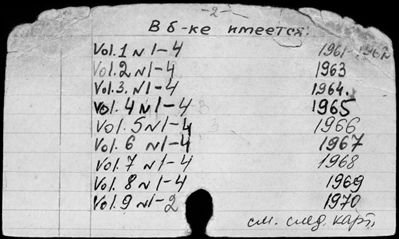 -2-
В б-ке имеется:
Vol. 1 N 1-4 1961-1962
Vol. 2 N 1-4 1963
Vol. 3. N 1-4 1964.
Vol. 4 N 1-4 1965
Vol. 5 N 1-4 1966
Vol. 6 N 1-4 1967
Vol. 7 N 1-4 1968
Vol. 8 N 1-4 1969
Vol. 9 N 1-2 1970
см. след. карт.